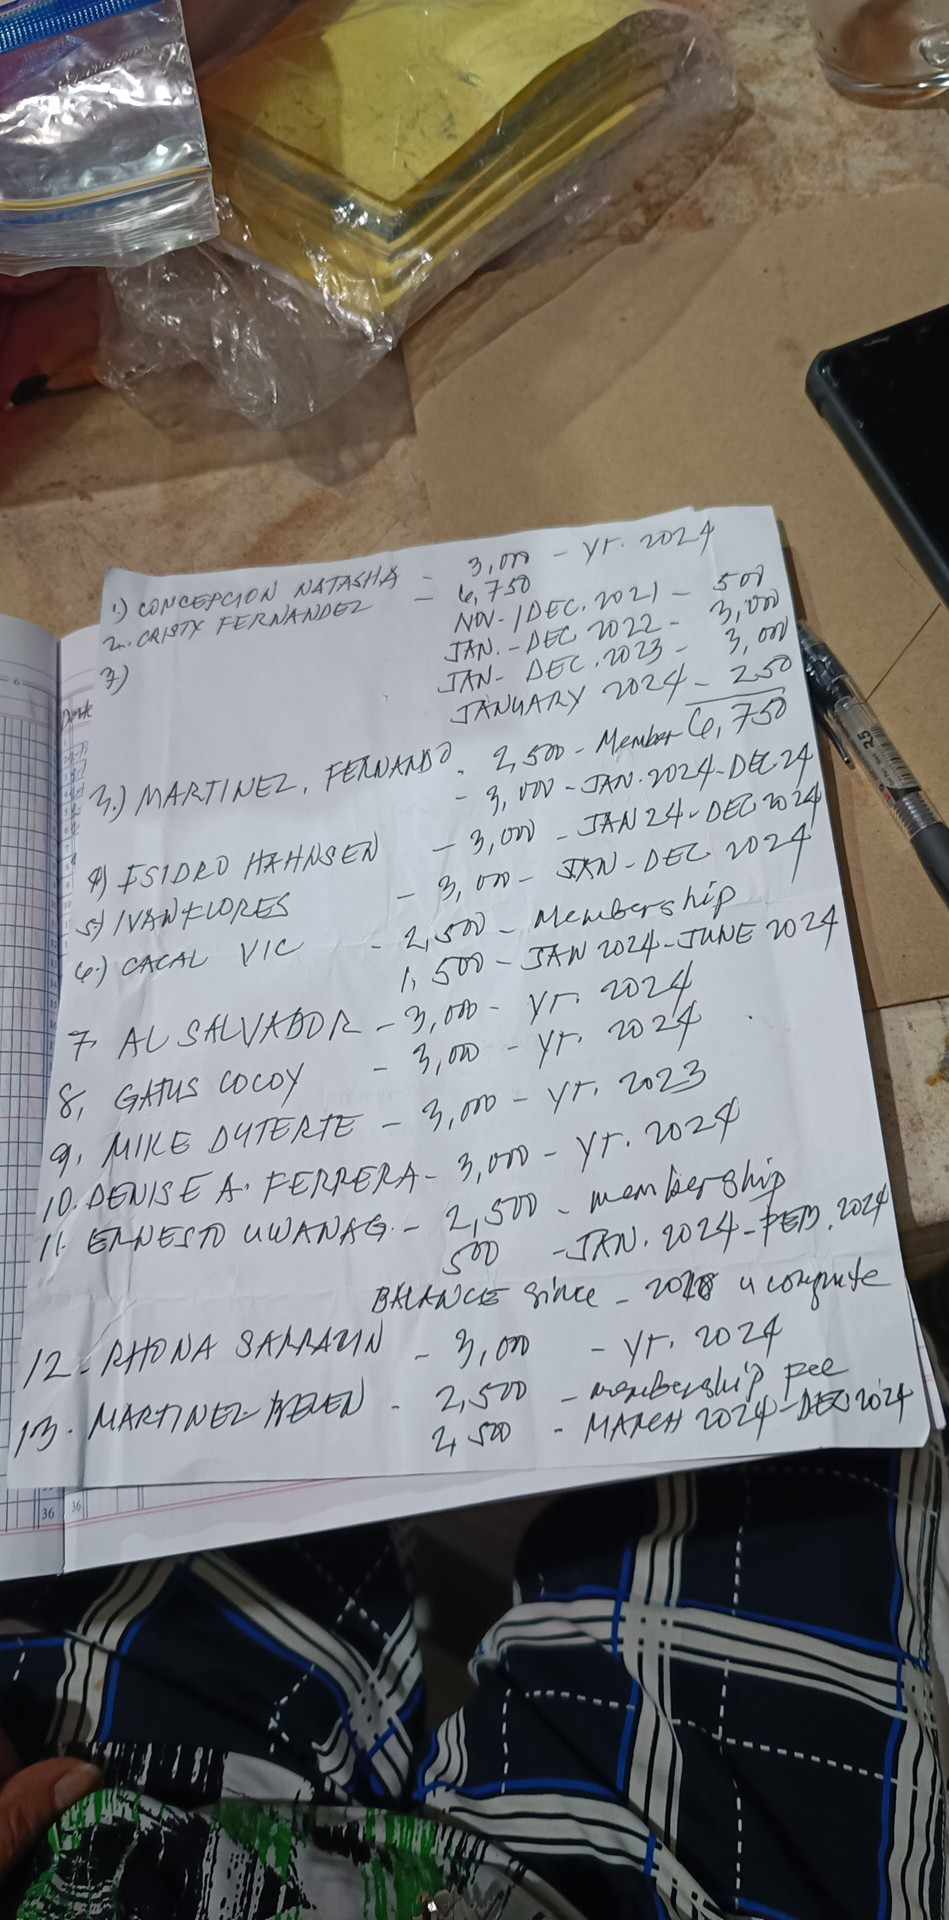 1.) CONCEPCION NATASHA - 3,000 - yr. 2024
2. CRISTY FERNANDEZ - 6,750
3) NOV-/DEC. 2021 - 500
JAN. - DEC 2022 - 3,000
JAN - DEC. 2023 - 3,000
JANUARY 2024 - 250
6,750
3.) MARTINEZ, FERNANDO - 2,500 - Member
- 3,000 - JAN. 2024 - DEC. 24
4) ISIDRO HAHNSEN - 3,000 - JAN 24 - DEC 2024
5) IVAN FLORES - 3,000 - JAN - DEC 2024
6.) CACAL VIC - 2,500 - Membership
1,500 - JAN 2024 - JUNE 2024
7. AL SALVADOR - 3,000 - yr. 2024
8. GATUS COCOY - 3,000 - yr. 2024
9. MIKE DUTERTE - 3,000 - yr. 2023
10. DENISE A. FERRERA - 3,000 - yr. 2024
11. ERNESTO UWANAG - 2,500 - membership
500 - JAN. 2024 - FEB. 2024
BALANCE since - 2018 u compute
12 - RHONA - 3,000 - yr. 2024
13. MARTINEZ BELEN - 2,500 - membership Fee
2,500 - MARCH 2024 - DEC 2024
36 36